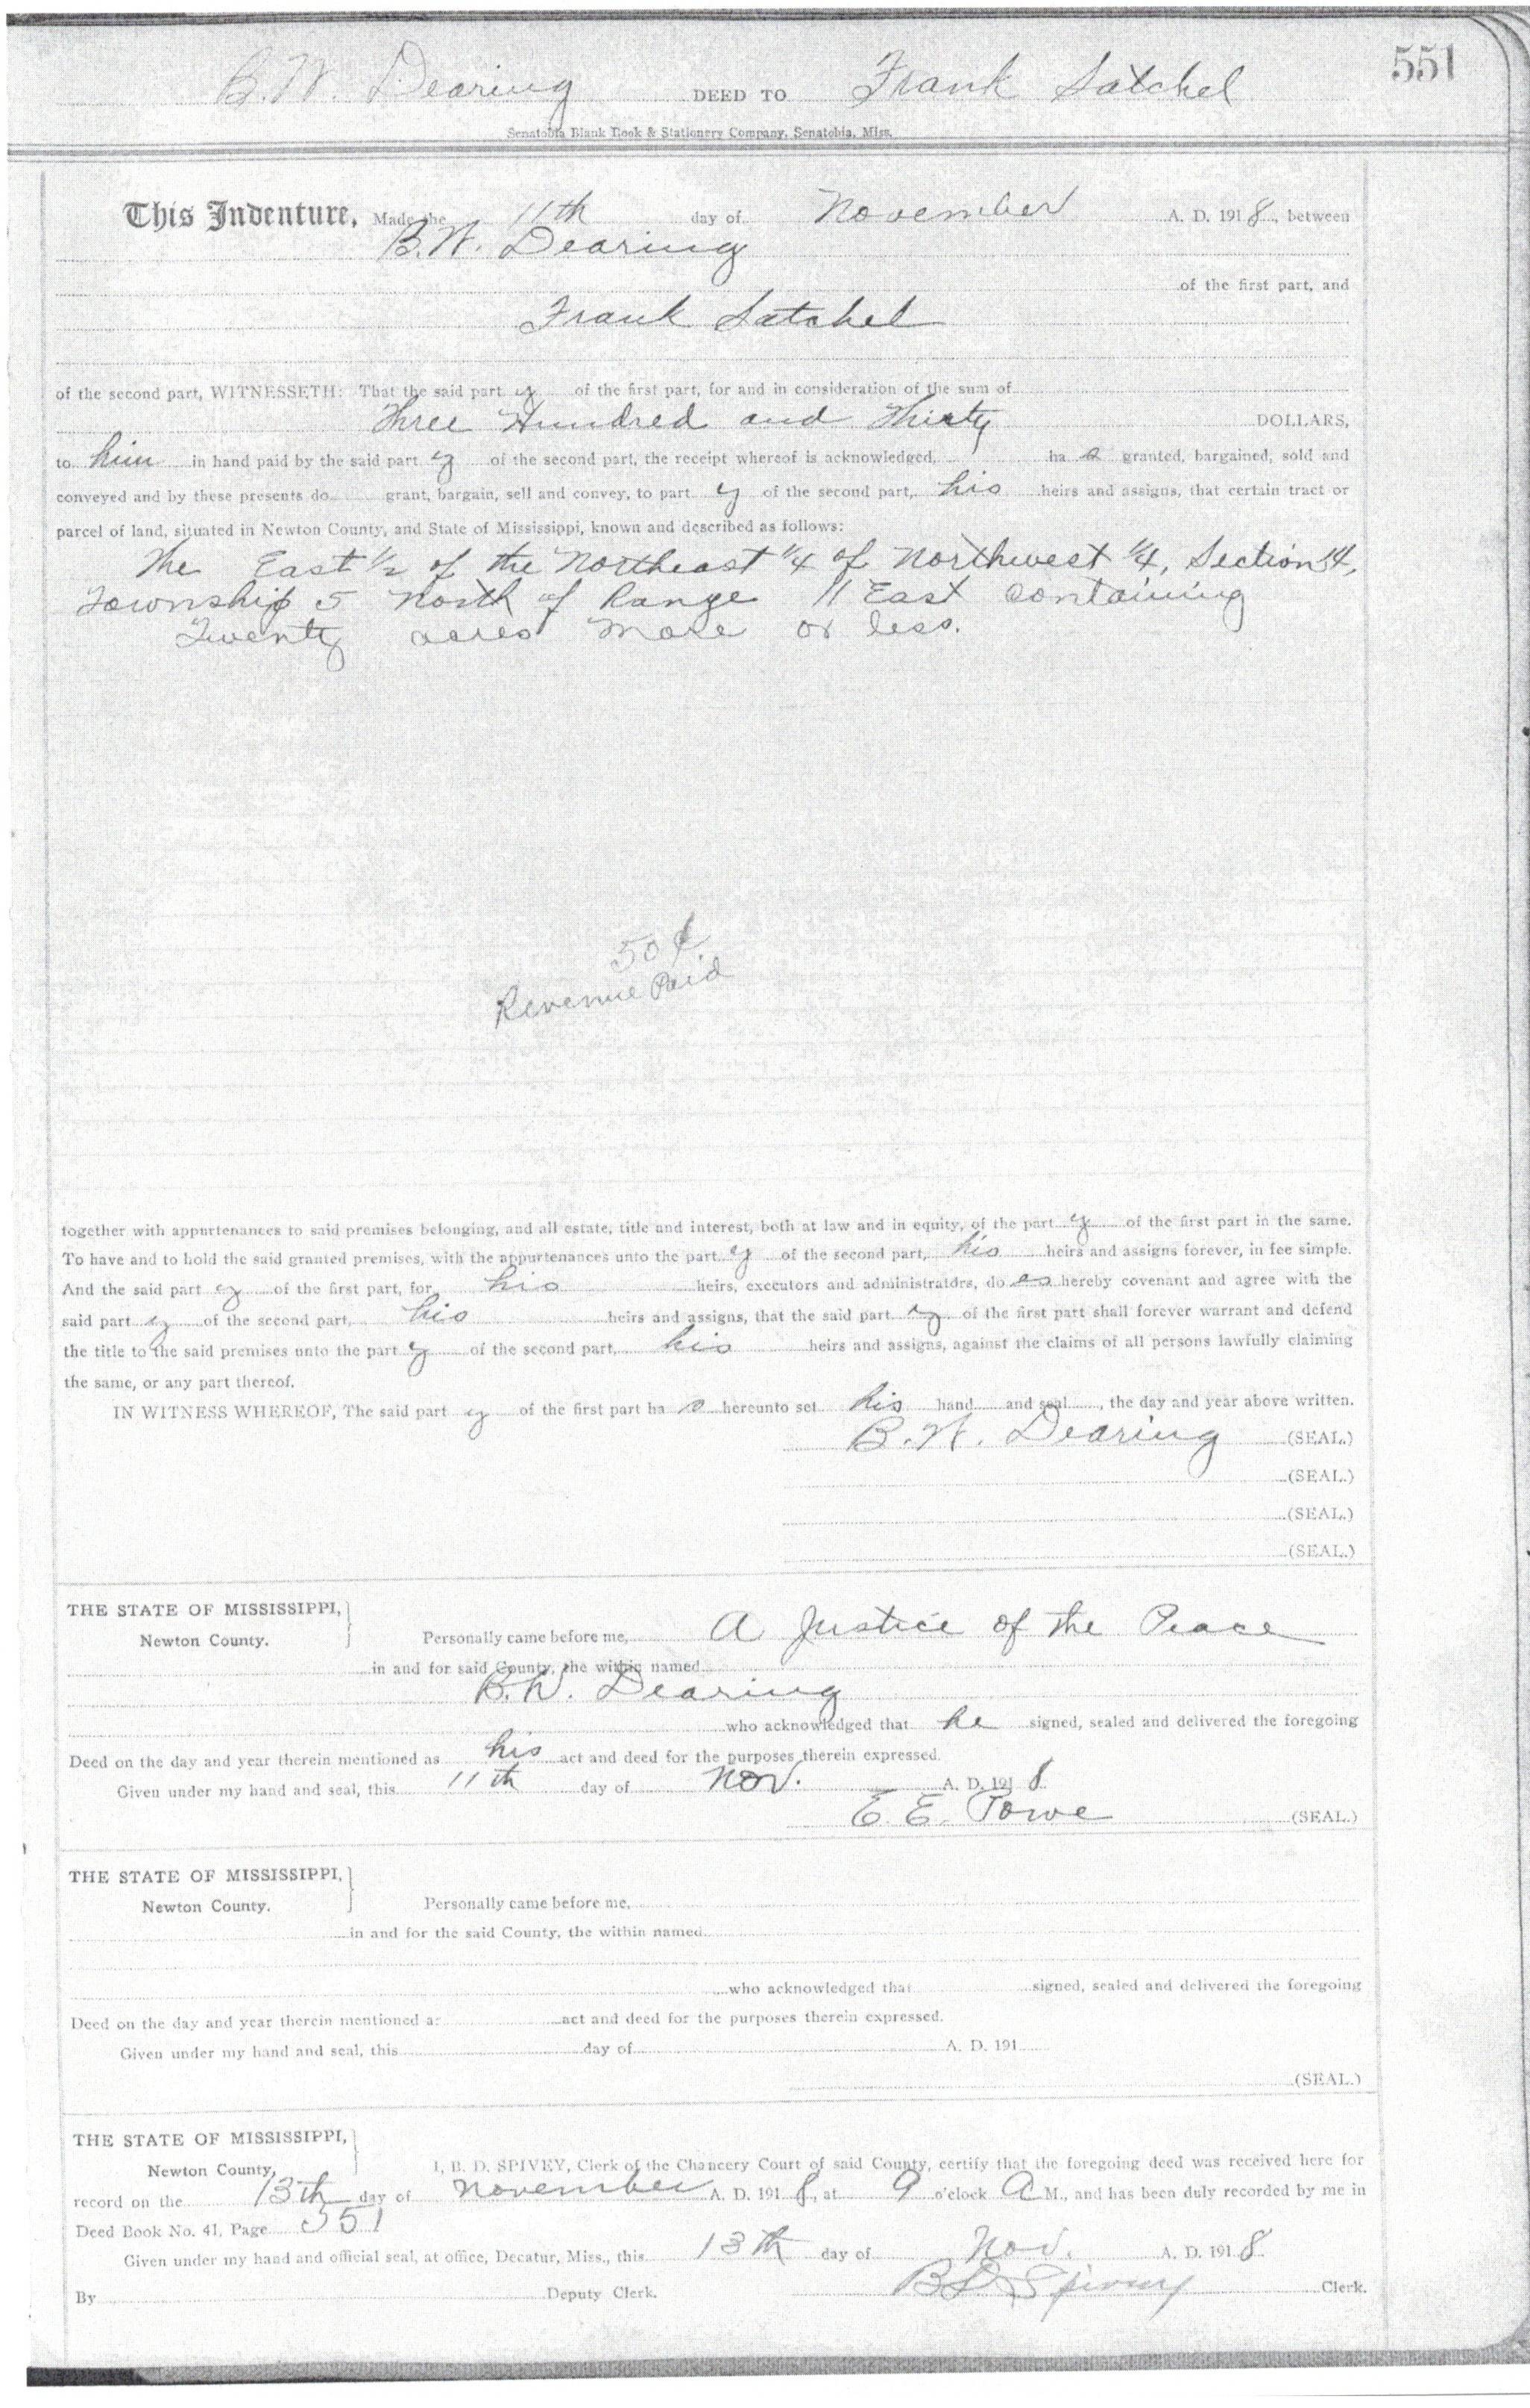 551
B. W. Dearing DEED TO Frank Satchel
Senatobia Blank Book & Stationery Company, Senatobia, Miss.
This Indenture, Made the 11th day of November A. D. 1918, between
B. W. Dearing
of the first part, and
Frank Satchel
of the second part, WITNESSETH: That the said party of the first part, for and in consideration of the sum of
Three Hundred and Thirty DOLLARS,
to him in hand paid by the said party of the second part, the receipt whereof is acknowledged, has granted, bargained, sold and
conveyed and by these presents do grant, bargain, sell and convey, to party of the second part, his heirs and assigns, that certain tract or
parcel of land, situated in Newton County, and State of Mississippi, known and described as follows:
The East 1/2 of the Northeast 1/4 of Northwest 1/4, Section 14,
Township 5 North of Range 11 East Containing
Twenty acres more or less.
50¢
Revenue Paid
together with appurtenances to said premises belonging, and all estate, title and interest, both at law and in equity, of the party of the first part in the same.
To have and to hold the said granted premises, with the appurtenances unto the party of the second part, his heirs and assigns forever, in fee simple.
And the said party of the first part, for his heirs, executors and administrators, does hereby covenant and agree with the
said party of the second part, his heirs and assigns, that the said party of the first part shall forever warrant and defend
the title to the said premises unto the party of the second part, his heirs and assigns, against the claims of all persons lawfully claiming
the same, or any part thereof.
IN WITNESS WHEREOF, The said party of the first part has hereunto set his hand and seal, the day and year above written.
B. W. Dearing (SEAL.)
(SEAL.)
(SEAL.)
(SEAL.)
THE STATE OF MISSISSIPPI,
Newton County. Personally came before me, A Justice of the Peace
in and for said County, the within named
B. W. Dearing
who acknowledged that he signed, sealed and delivered the foregoing
Deed on the day and year therein mentioned as his act and deed for the purposes therein expressed.
Given under my hand and seal, this 11th day of Nov. A. D. 1918
E. E. Powe (SEAL.)
THE STATE OF MISSISSIPPI,
Newton County. Personally came before me,
in and for the said County, the within named
who acknowledged that signed, sealed and delivered the foregoing
Deed on the day and year therein mentioned a: act and deed for the purposes therein expressed.
Given under my hand and seal, this day of A. D. 191
(SEAL.)
THE STATE OF MISSISSIPPI,
Newton County. I, B. D. SPIVEY, Clerk of the Chancery Court of said County, certify that the foregoing deed was received here for
record on the 13th day of November A. D. 1918, at 9 o'clock A M., and has been duly recorded by me in
Deed Book No. 41, Page 551
Given under my hand and official seal, at office, Decatur, Miss., this 13th day of Nov. A. D. 1918
By Deputy Clerk. B D Spivey Clerk.